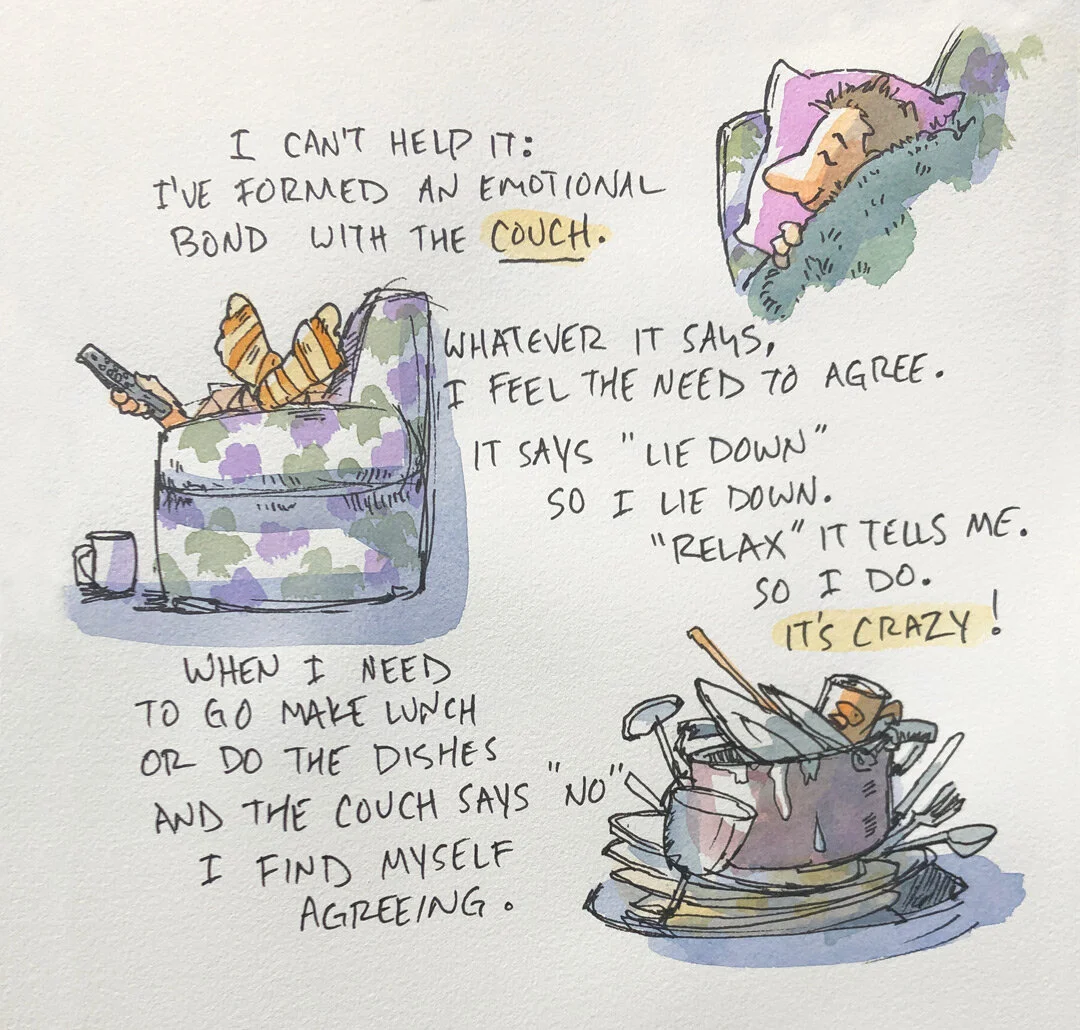 I CAN'T HELP IT:
I'VE FORMED AN EMOTIONAL
BOND WITH THE COUCH.
WHATEVER IT SAYS,
I FEEL THE NEED TO AGREE.
IT SAYS "LIE DOWN"
SO I LIE DOWN.
"RELAX" IT TELLS ME.
SO I DO.
IT'S CRAZY!
WHEN I NEED
TO GO MAKE LUNCH
OR DO THE DISHES
AND THE COUCH SAYS "NO"
I FIND MYSELF
AGREEING.